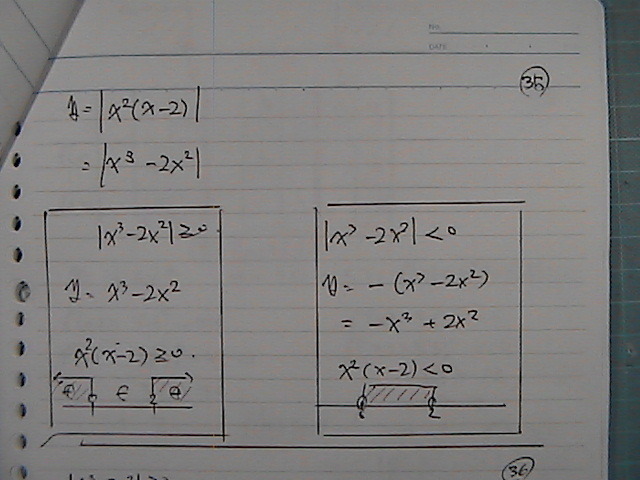 NO.
DATE
35
y = |x²(x-2)|
= |x³ - 2x²|
|x³-2x²| ≥ 0
y = x³-2x²
x²(x-2) ≥ 0.
|x³ - 2x²| < 0
y = - (x³ - 2x²)
= -x³ + 2x²
x²(x-2) < 0
2
36